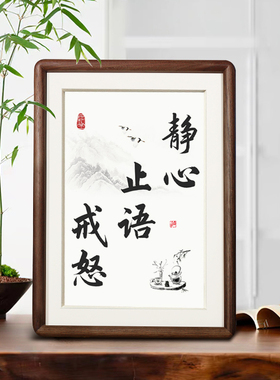 静心
止语
戒怒